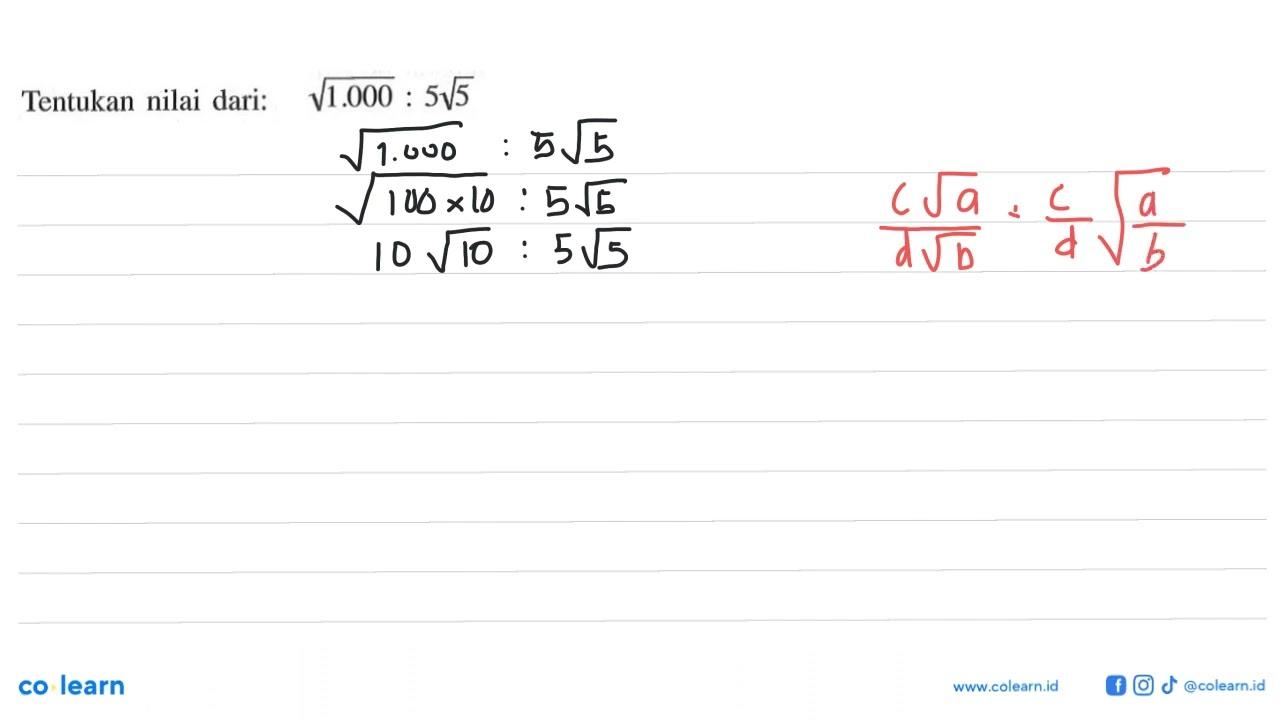 Tentukan nilai dari: √1.000 : 5√5
√1.000 : 5√5
√100 × 10 : 5√5
10√10 : 5√5
c√a / d√b = c/d √a/b
co learn
www.colearn.id @colearn.id